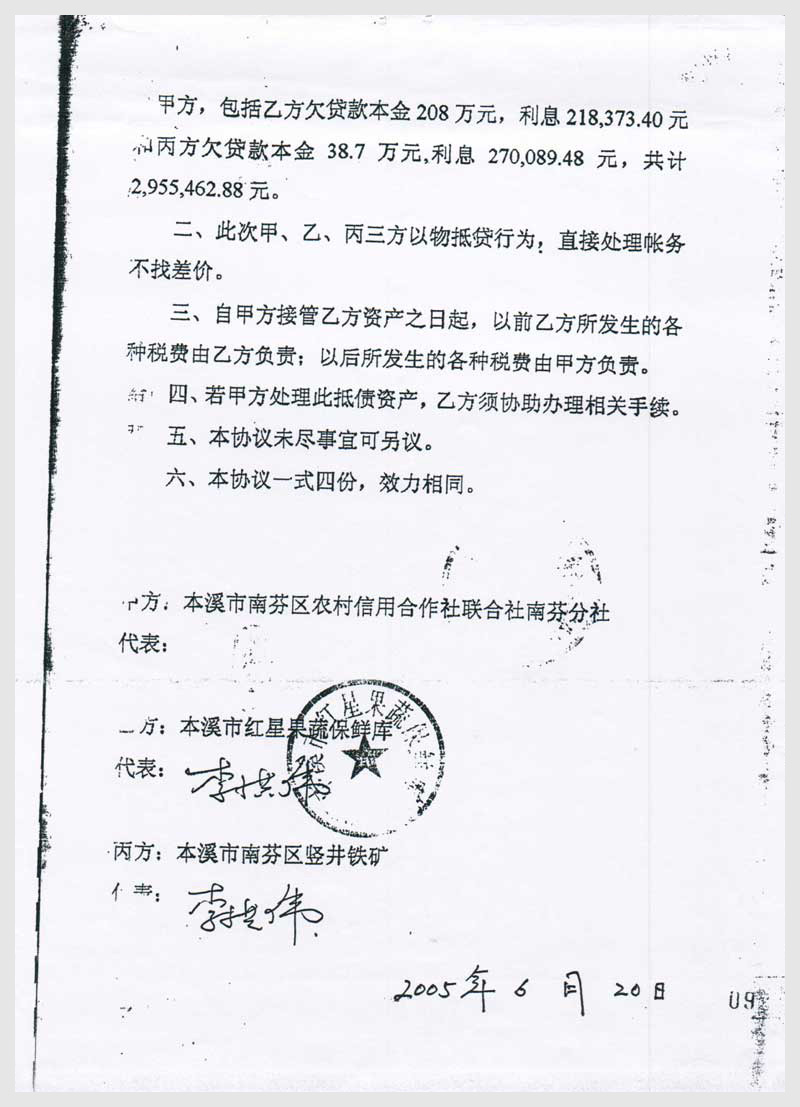 甲方，包括乙方欠贷款本金208万元，利息218,373.40元
和丙方欠贷款本金 38.7 万元,利息 270,089.48 元，共计
2,955,462.88元。
二、此次甲、乙、丙三方以物抵贷行为，直接处理帐务
不找差价。
三、自甲方接管乙方资产之日起，以前乙方所发生的各
种税费由乙方负责；以后所发生的各种税费由甲方负责。
四、若甲方处理此抵债资产，乙方须协助办理相关手续。
五、本协议未尽事宜可另议。
六、本协议一式四份，效力相同。
甲方：本溪市南芬区农村信用合作社联合社南芬分社
代表：
乙方：本溪市红星果蔬保鲜库
溪市红星果蔬保鲜
代表：李洪伟
丙方：本溪市南芬区竖井铁矿
代表：李洪伟
2005年6月20日
09